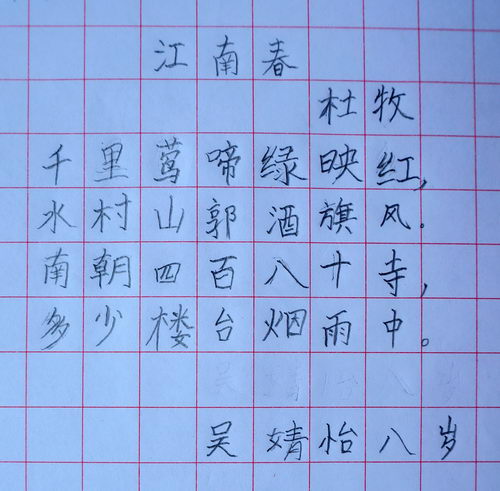 江南春
杜牧
千里莺啼绿映红,
水村山郭酒旗风。
南朝四百八十寺,
多少楼台烟雨中。
吴婧怡八岁